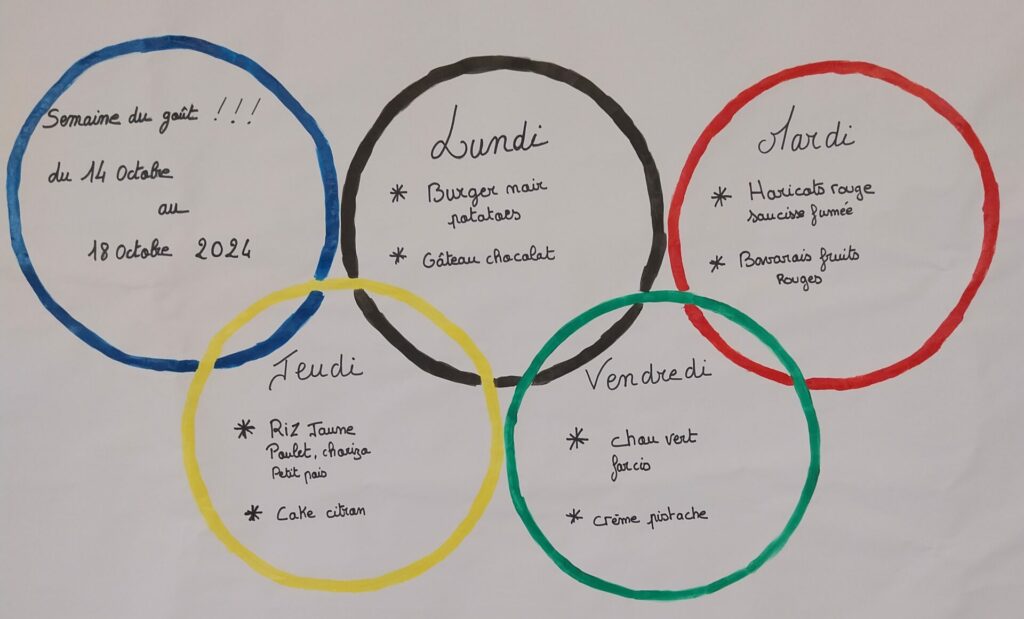 Semaine du goût !!!
du 14 Octobre
au
18 Octobre 2024
Lundi
* Burger noir
potatoes
* Gâteau chocolat
Mardi
* Haricots rouge
saucisse fumée
* Bavarois fruits
Rouges
Jeudi
* Riz Jaune
Poulet, chorizo
Petit pois
* Cake citron
Vendredi
* Chou vert
farcis
* Crème pistache